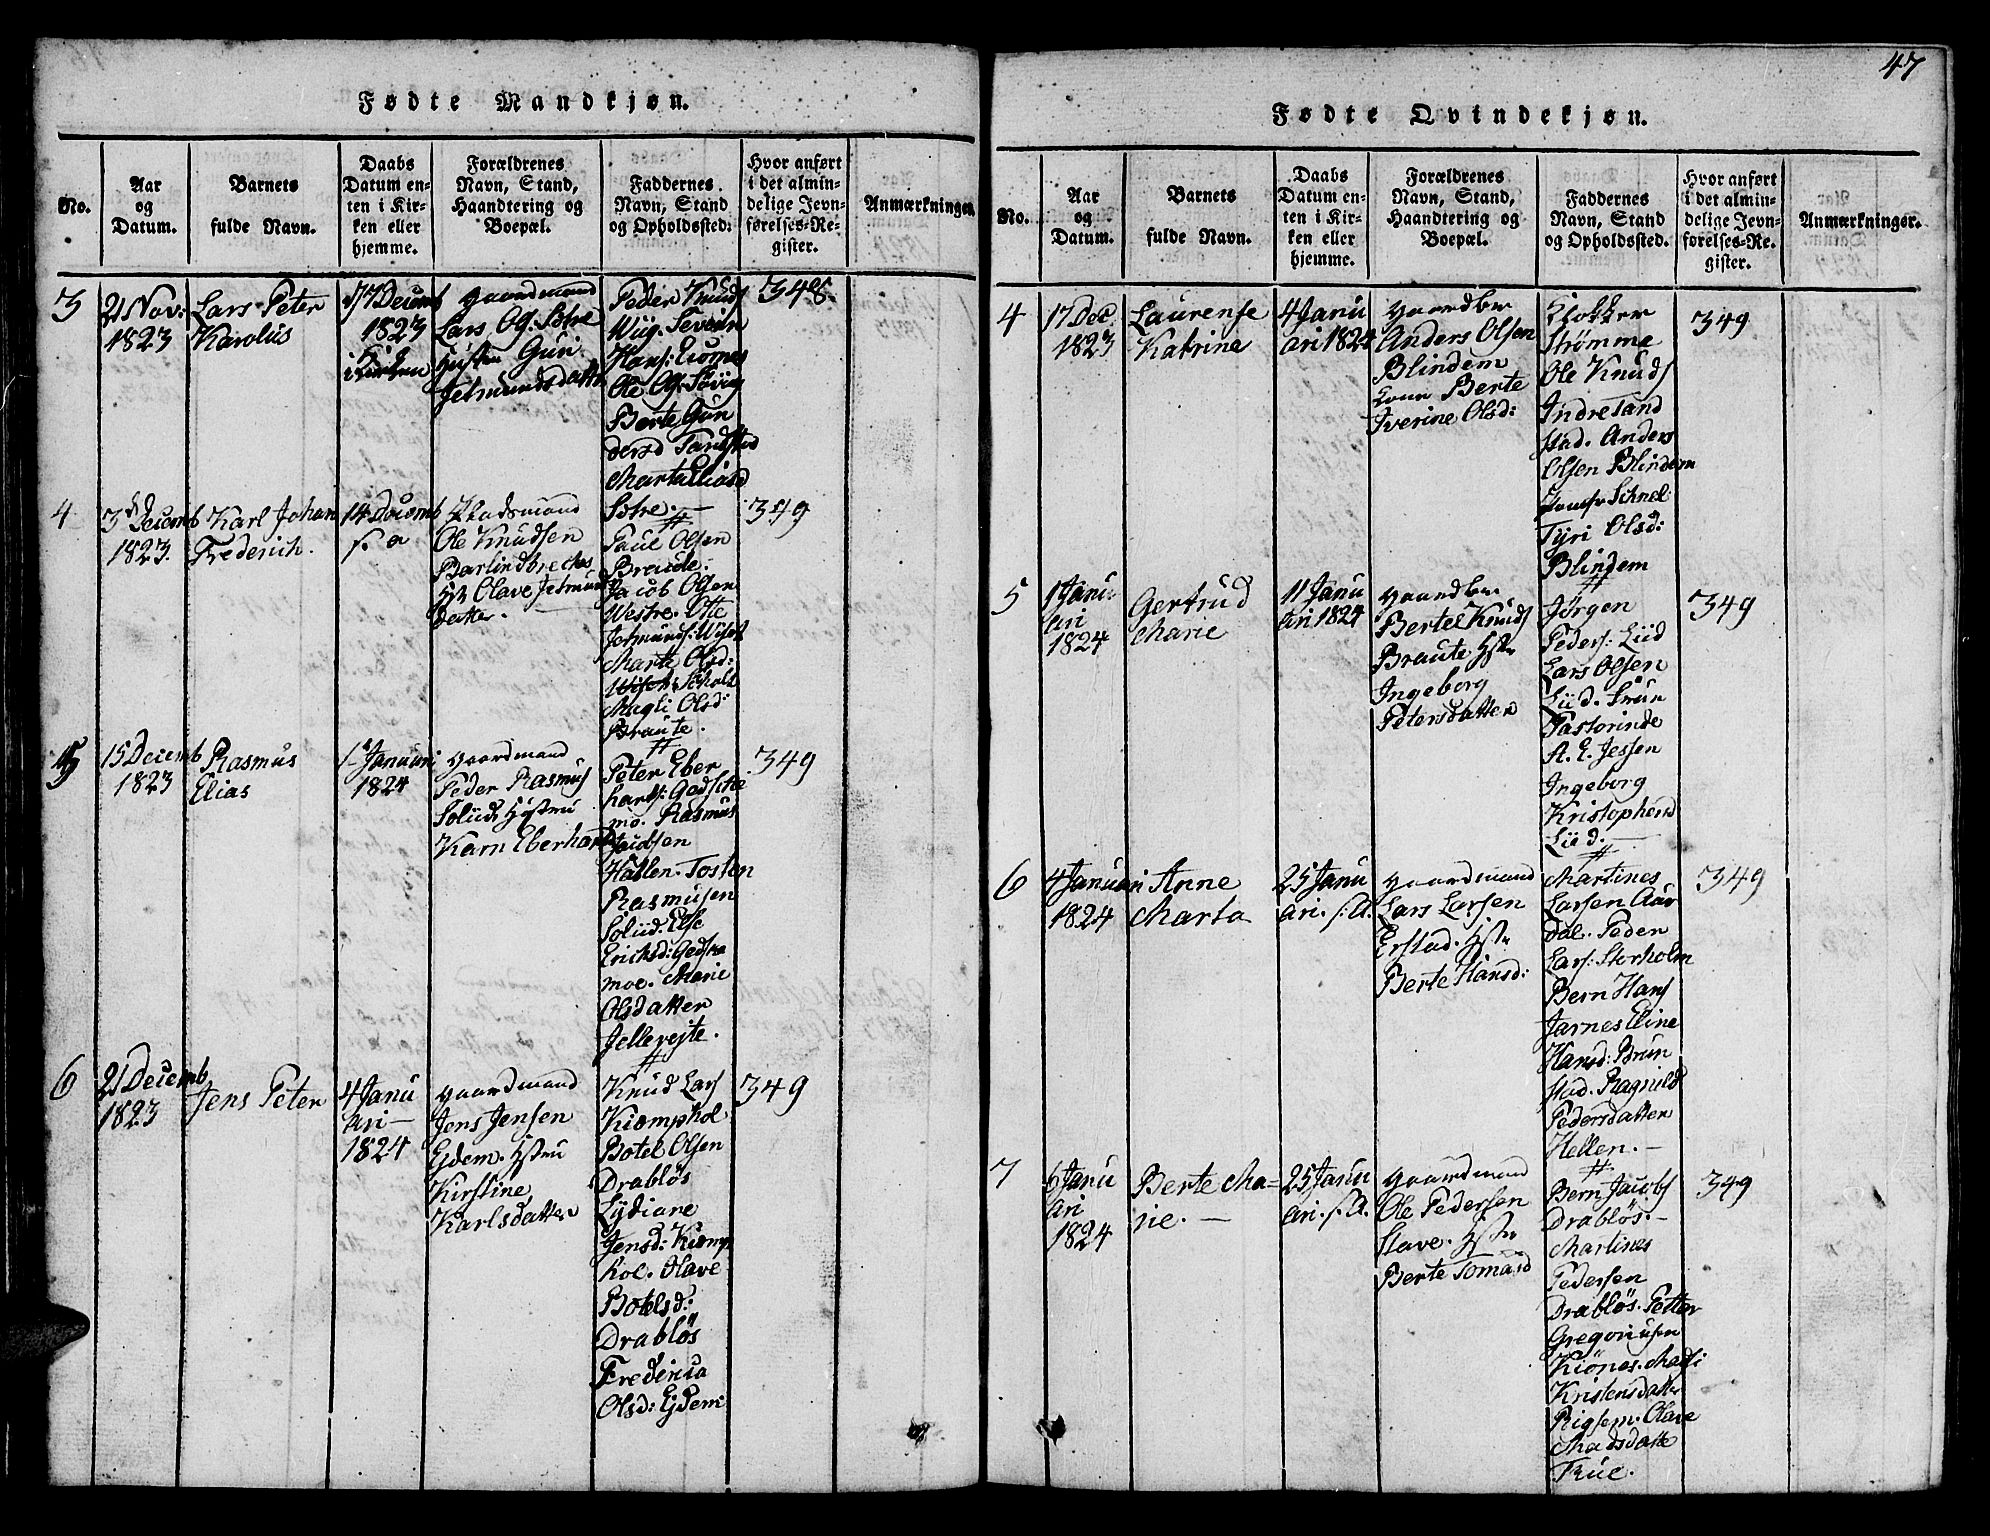 47
Fødte Mandkjøn.
No.
Aar
og
Datum.
Barnets
fulde Navn.
Daabs
Datum en-
ten i Kir-
ken eller
hjemme.
Forældrenes
Navn, Stand,
Haandtering og
Boepæl.
Faddernes
Navn, Stand
og Opholdssted.
Hvor anført
i det almin-
delige Jevn-
førelses-Re-
gister.
Anmærkninger.
3
21 Nov:
1823
Lars Peter
Karolus
17 Decemb
1823
i Kirken
Gaardmand
Lars Ols: Søhre
Hustru Guri
Jetmundsdatter
Peder Knuds
Wiig. Severin
Hans:
Ole Ols: Søvig
Berte Gun
dersd Tandstad
Marta Eliasd
Søhre. —
348.
4
3d Decemb
1823.
Karl Johan
Frederich.
14 Decemb
s. a
Pladsmand
Ole Knudsen
Barlindbrechs
Hst Olave Jetmunds
datter.
Paul Olsen
Braute.
Jacob Olsen
Westre. Otte
Johnuns: Wisch
Marte Olsd:
Søholt
Magli Olsd:
Braute.
349
5
15 Decemb
1823
Rasmus
Elias
1 Januari
1824
Gaardmand
Peder Rasmus
Soliid Hystru
Karn Eberhard
Peter Eber
harts: Godske
mo. Rasmus
Knudsen
Hatlen. Tosten
Rasmusen
Soliid. Else
Ericksd: Gedske
moe. Marie
Olsdatter
Jellerejte.
349
6
21 Decemb
1823
Jens Peter
4 Janu
ari —
1824
Gaardmand
Jens Jensen
Ejdem. Hstru
Kirstine
Karlsdatter
Knud Lars
Kiomphol
Botel Olsen
Drabløs
Lydiane
Jensd: Kiomp
hol. Olave
Botelsd:
Drabløs
Frederica
Olsd: Ejdem
349
Fødte Qvindekjøn.
No.
Aar
og
Datum.
Barnets
fulde Navn.
Daabs
Datum en-
ten i Kir-
ken eller
hjemme.
Forældrenes
Navn, Stand,
Haandtering og
Boepæl.
Faddernes
Navn, Stand
og Opholdssted.
Hvor anført
i det almin-
delige Jevn-
førelses-Re-
gister.
Anmærkninger.
4
17 Dec.
1823
Laurense
Katrine
4 Janu
ari 1824
Gaardbr
Anders Olsen
Blindem
Kone Berte
Iverine Olsd:
Klokker
Strømme
Ole Knuds
Indre Tand
stad. Anders
Olsen Blindem
Jomfr Schnel
Tyri Olsd:
Blindem
349
5
1 Janu
ari
1824
Gertrud
Marie
11 Janu
ari 1824
Gaardbr
Bertel Knuds
Braute Hstr
Ingeborg
Petersdatter
Jørgen
Peders: Liid
Lars Olsen
Liid. Frun
Pastorinde
A. E. Jessen
Ingeborg
Kristophersd
Liid. —
349
6
4 Januari
1824
Anne
Marta
25 Janu
ari. s. A.
Gaardmand
Lars Larsen
Erstad. Hstr
Berte Hansd:
Martines
Larsen Aur
dal. Peder
Lars: Storholm
Bern Hans
Jarnes Eline
Hansd: Brun
stad. Ragnild
Pedersdatter
Hellen. —
349
7
6 Janu
ari
1824
Berte Ma=
rie. —
25 Janu
ari. s. A.
Gaardmand
Ole Pedersen
Slave. Hstr
Berte Tomasd
Bern Jacobs
Drabløs. —
Martines
Pedersen
Drabløs. Petter
Gregoriusen
Kiønes. Madli
Kristensdatter
Rigsem. Olave
Madsdatte
Krue.
349